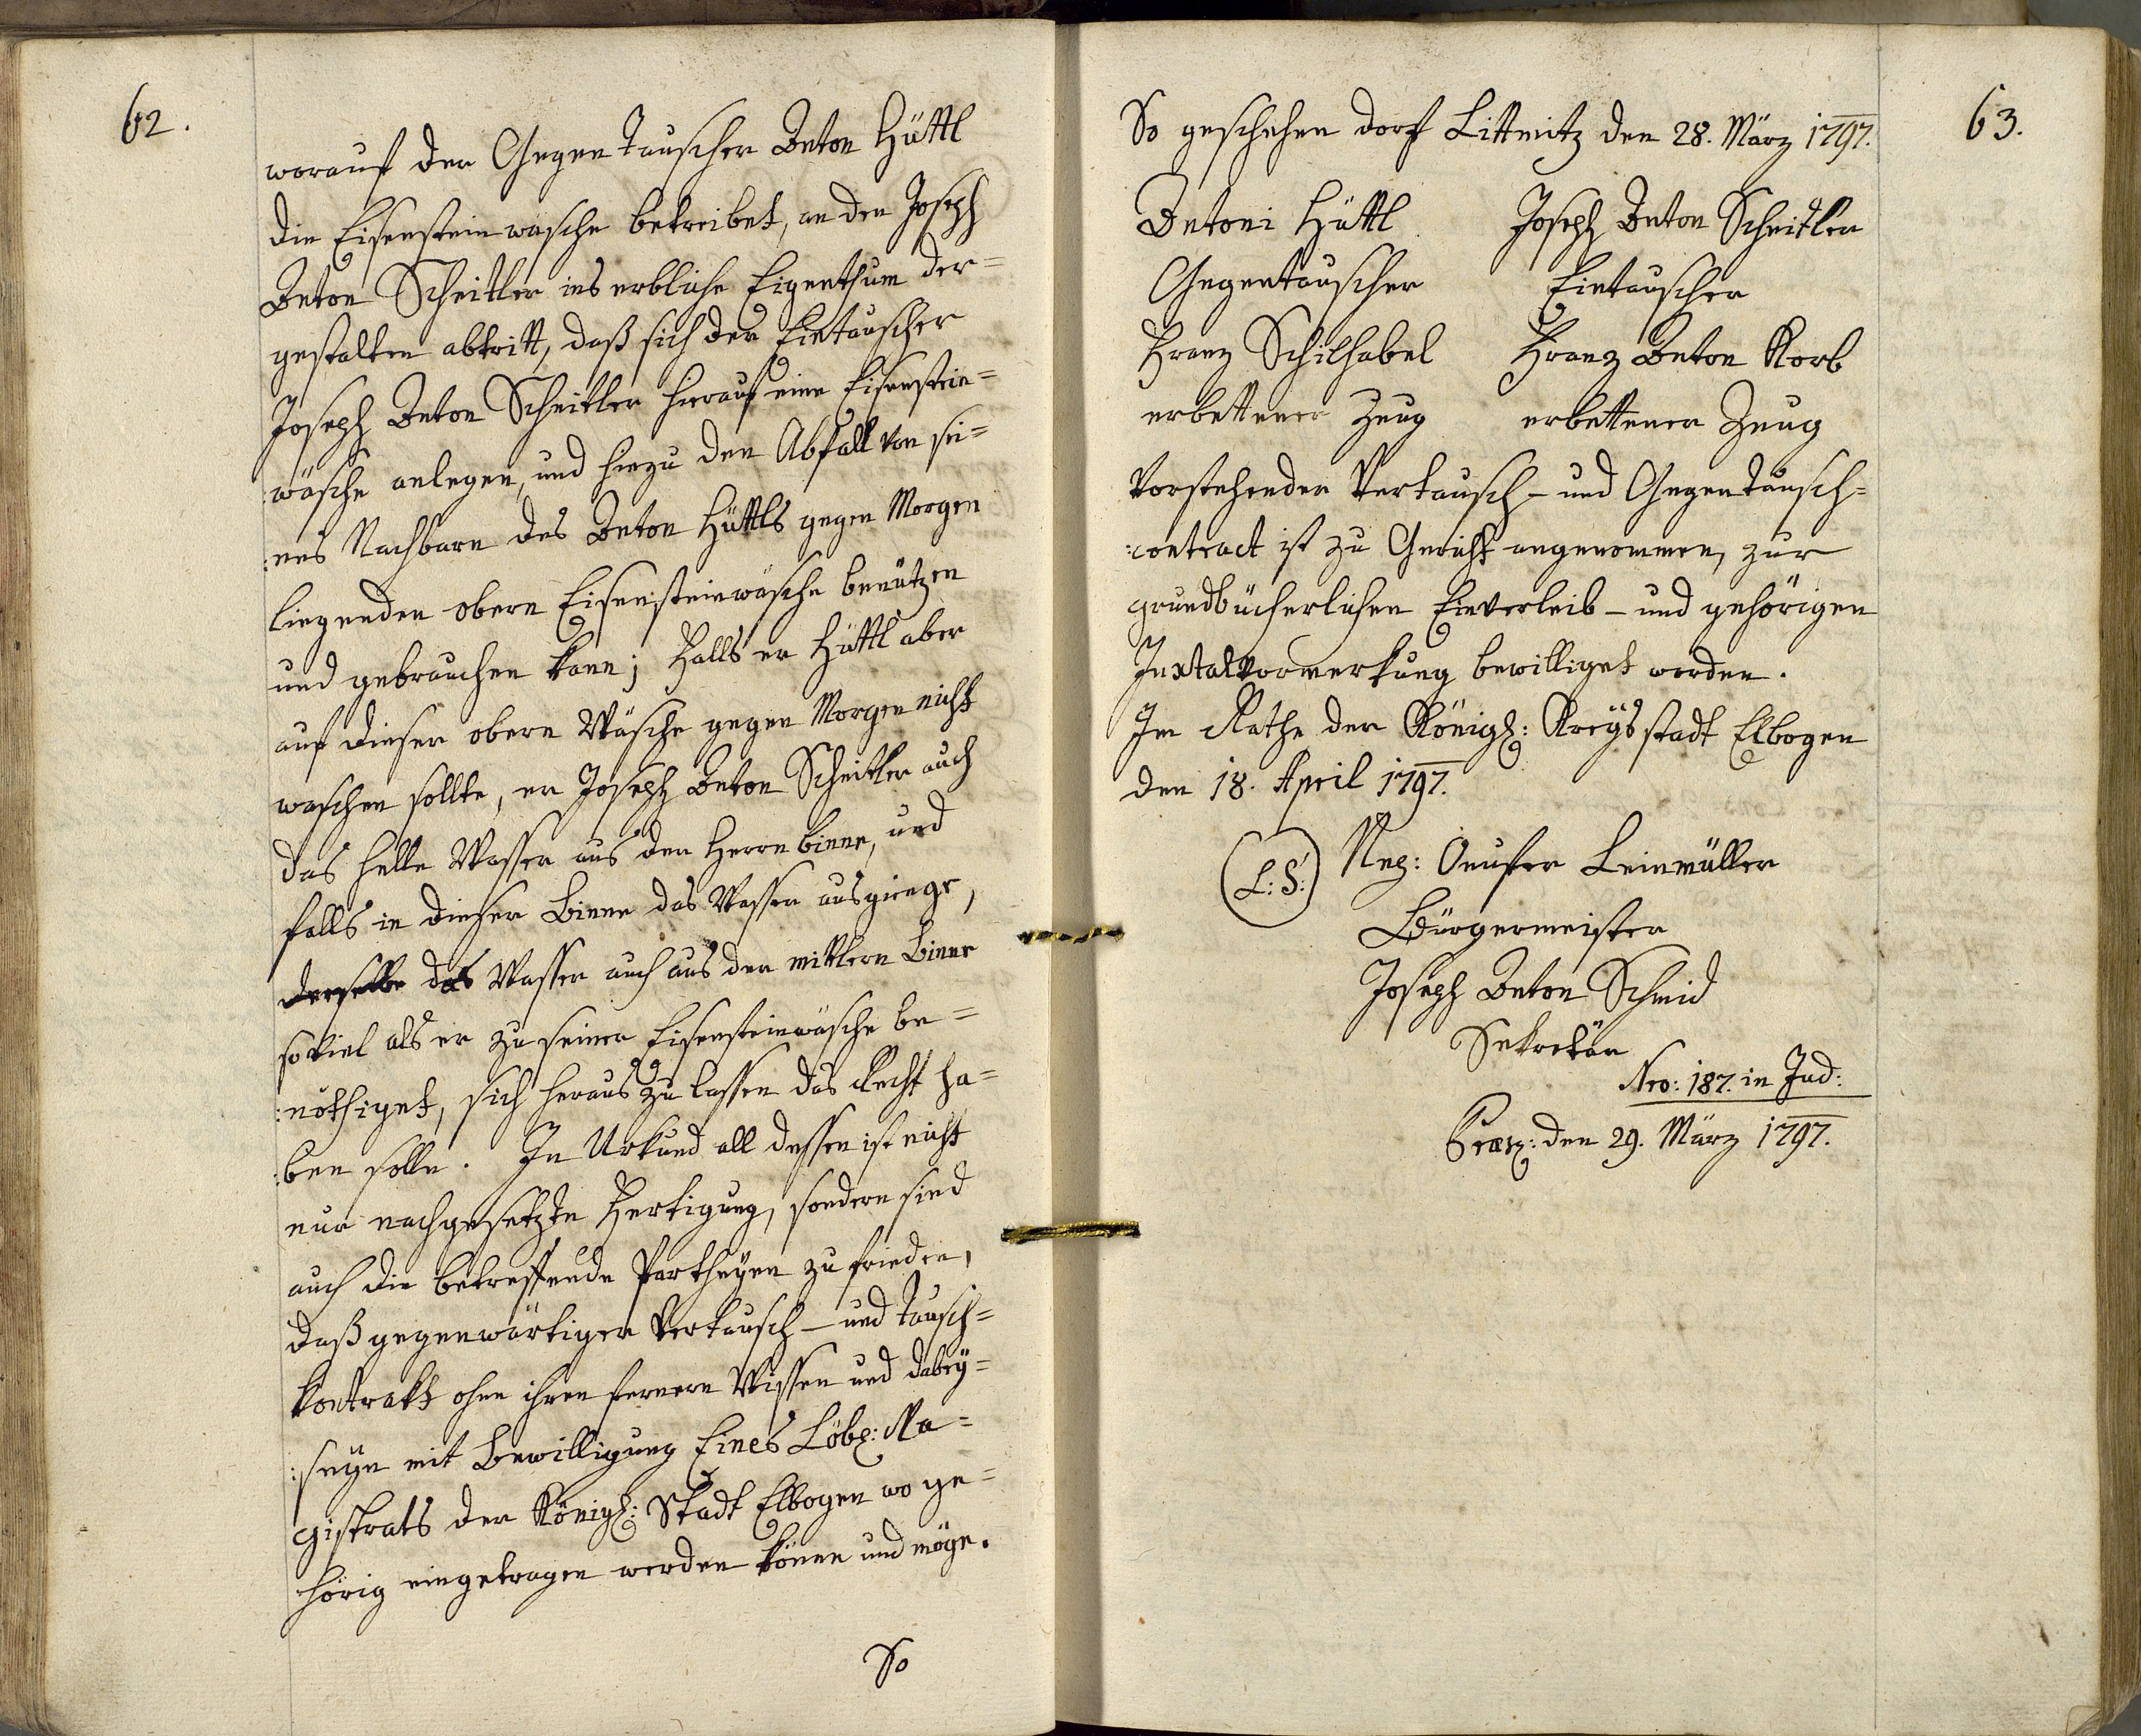 62.
worauf der Gegentauscher Anton Hüttl
die Eisensteinwäsche betreibet, an den Joseph
Anton Scheitler ins erbliche Eigenthum der=
gestalten abtritt, daß sich der Eintauscher
Joseph Anton Scheitler hierauf eine Eisenstein=
:wäsche anlegen, und hiezu den Abfall von sei=
:nes Nachbarn des Anton Hüttls gegen Morgen
liegenden obern Eisensteinwäsche benützen
und gebrauchen kann; Falls er Hüttl aber
auf dieser obern Wäsche gegen Morgen nicht
waschen sollte, er Joseph Anton Scheitler auch
das helle Wasser aus der Herrnbinne, und
falls in dieser Binne das Wasser ausgienge,
derselbe das Wasser auch aus der mittlern Binne
soviel als er zu seiner Eisensteinwäsche be=
:nöthiget, sich heraus zu lassen das Recht ha=
:ben solle. In Urkund all dessen ist nicht
nur nachgesetzte Fertigung, sondern sind
auch die betreffende Partheyen zufrieden,
daß gegenwärtiger Vertausch- und Tausch=
kontrakt ohne ihren fernern Wissen und dabey=
:seyn mit Bewilligung Eines Löbl: Ma=
gistrats der Königl: Stadt Elbogen wo ge=
hörig eingetragen werden könne und möge.
So
63.
So geschehen dorf Littmitz den 28. März 1797.
Antoni Hüttl Joseph Anton Scheitler
Gegentauscher Eintauscher
Franz Schilhabel Franz Anton Korb
erbettener Zeug erbettener Zeug
Vorstehender Vertausch- und Gegentausch=
:contract ist zu Gericht angenommen, zur
grundbücherlichen Einverleib- und gehörigen
Juxtalvormerkung bewilliget worden.
Im Rathe der Königl: Kreysstadt Elbogen
den 18. April 1797.
(L:S:) Neg: Onufer Leinmüller
Bürgermeister
Joseph Anton Schmid
Sekretär
Nro: 187. in Jud:
Præs: den 29. März 1797.